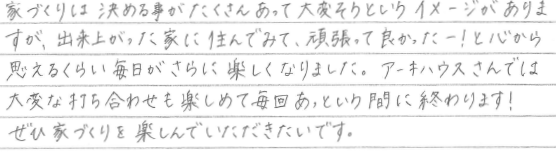 家づくりは決める事がたくさんあって大変そうというイメージがありま
すが、出来上がった家に住んでみて、頑張って良かったー!と心から
思えるくらい毎日がさらに楽しくなりました。アーキハウスさんでは
大変な打ち合わせも楽しめて毎回あっという間に終わります!
ぜひ家づくりを楽しんでいただきたいです。